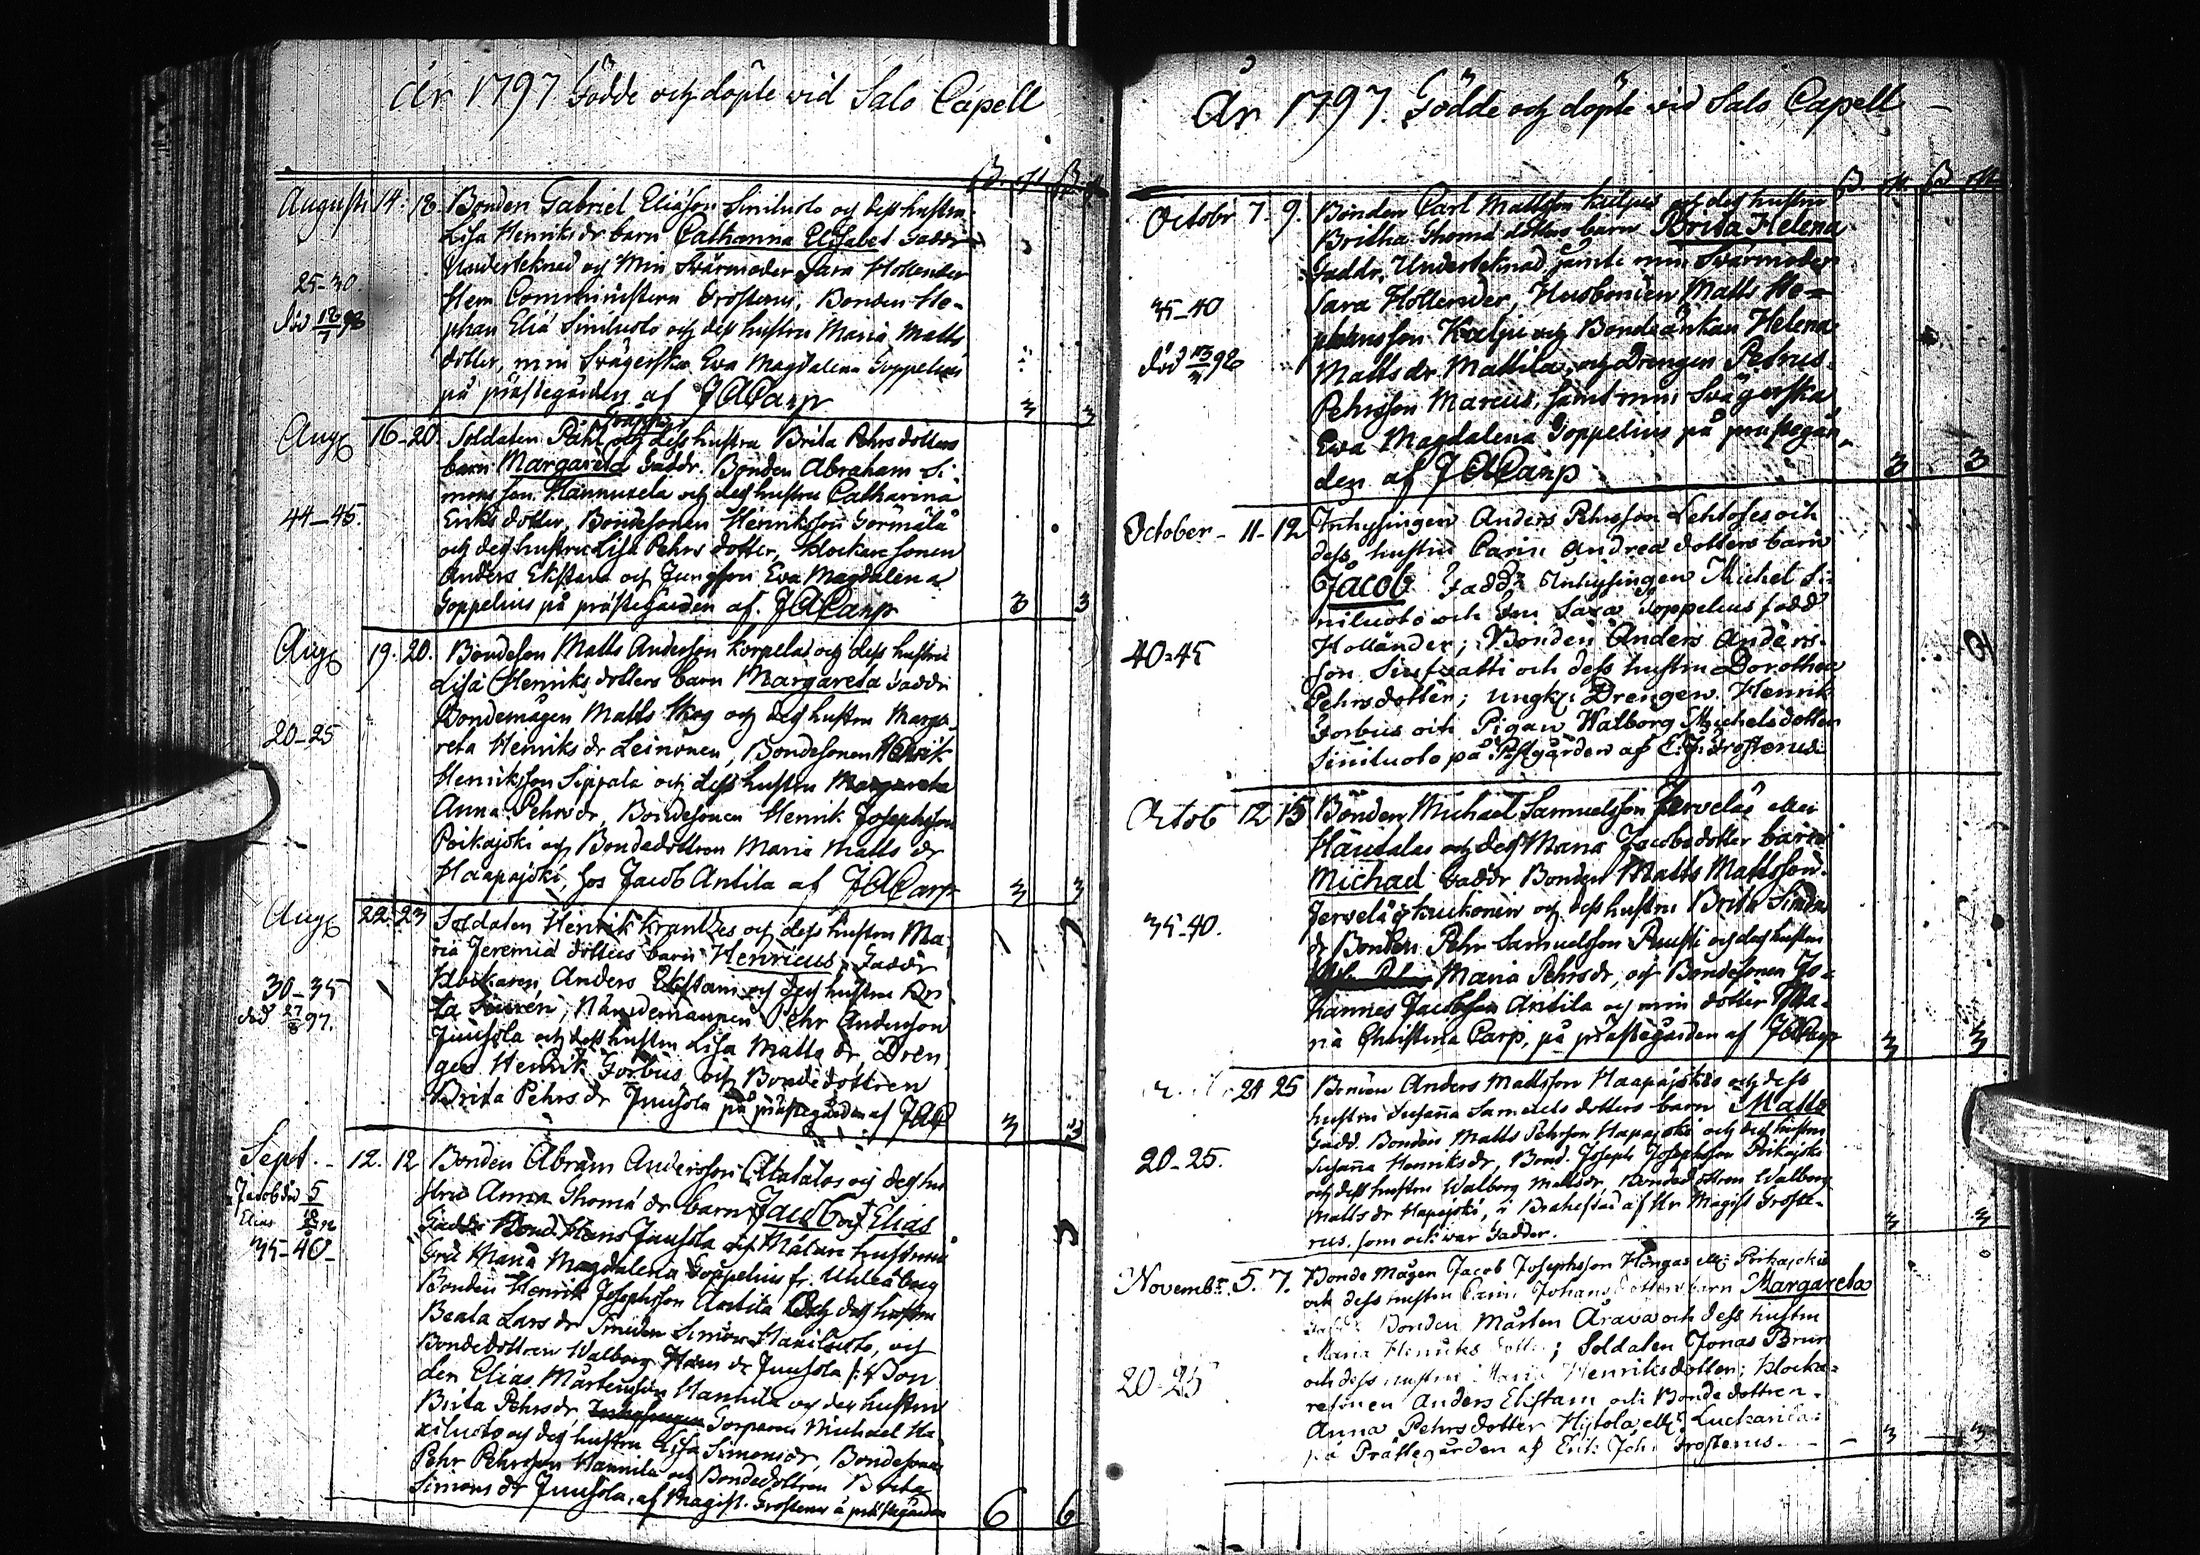 År 1797 Födde och döpte vid Salo Capell
Augusti 14. 18. Bonden Gabriel Eliäson Siniluoto och dess hustru
Lisa Henriksdr barn Catharina Elisabet Faddr
Underteknad och Min Svärmoder Sara Hollender
25-30 Herr Comministern Frosterus, Bonden Ste-
död 18/7 98 phan Eliä Siniluoto och dess hustru Maria Matts
dotter, min Svägerska Eva Magdalena Toppelius
på prästegården af JACarp 3 3
Aug 16-20. Soldaten Påhl och dess hustru Brita Pehrs dotters
barn Margareta Faddr. Bonden Abraham Si-
mons son Hannuxela och dess hustru Catharina
44-45. Eriks dotter, Bondesonen Henriksson
och dess hustru Lisa Pehrs dotter, Klockare sonen
Anders Ekstam och Jungfru Eva Magdalena
Toppelius på prästegården af. JACarp 3 3
Aug 19. 20. Bondeson Matts Anderson Korpelas och dess hustru
Lisa Henriks dotters barn Margareta Faddr
Bondemågen Matts Skog och dess hustru Marga-
20-25 reta Henriks dr Leinonen, Bondesonen Henrik
Henriksson Sippala och dess hustru Margareta
Anna Pehrsdr, Bondesonen Henrik Josephsson
Poikajoki och Bondedottren Maria Matts dr
Haapajoki, hos Jacob Antila af JACarp 3 3
Aug 22. 23 Soldaten Henrik Krantzes och dess hustru Ma-
ria Jeremiä dotters barn Henricus; Faddr
Klockaren Anders Ekstam och dess hustru
30-35 Nämdemannen Pehr Andersson
död 27/8 97. Juusola och dess hustru Lisa Matts dr Dren
gen Henrik Forbus och Bondedottren
Brita Pehrs dr Juusola på prästegården af JAC 3 3
Sept. - 12. 12 Bonden Abram Andersson Attalas och dess hu
stru Anna Thomä dr barn Jacob och Elias
Jacob död 5
Elias
35-40- Faddr Bond. Hans Juusola och Mätare hustrun
Fru Maria Magdalena Toppelius fr. Uhleåborg
Bonden Henrik Josephsson Antila och dess hustru
Beata Lars dr Smeden Simon Hariluoto, och
Bondedottren Walborg Hans dr Juusola /: Bon
den Elias Mårtensson Hannila och dess hustru
Brita Pehrsdr Torparen Michael Ha
riluoto och dess hustru Lisa Simonsdr, Bondesonen
Pehr Pehrsson Hannila och Bondedottren Brita
Simons dr Juusola, af Magist. Frosterus å prästegården 6 6
År 1797. Födde och döpte vid Salo Capell
Octobr 7. 9. Bonden Carl Mattsson Kalpus och dess hustru
Britha Thomä dotters barn Brita Helena
Faddr. Undertecknad jämte min Svärmoder
35-40 Sara Hollender, Husbonden Matts Ste-
phansson Kalpu och Bondeänkan Helena
död 13/3 98 Matts dr Mattila, och Drengen Petrus
Pehrsson Marcus, samt min Svägerska
Eva Magdalena Toppelius på prästegår-
den af JACarp 3 3
October - 11-12 Inhysingen Anders Pehrsson Lehtoses och
dess hustru Carin Andreä dotters barn
Jacob Faddr Inhysingen Michel Si-
niluoto och Fru Sara Toppelius född
40-45 Holländer; Bonden Anders Anders-
son och dess hustru Dorothea
Pehrsdotter; Ungk. Drengen Henrik
Forbus och Pigan Walborg Michelsdotter
Siniluoto på Pstgården af E.J. Frosterus
Octob 12 15 Bonden Michael Samuelsson Jerveläs eller
Hautalas och dess Maria Jacobsdotter barn
Michael Faddr Bonden Matts Mattsson
35-40. Jervelä och dess hustru Brita Simons
dr Bonden Pehr Samuelsson Ruusti och dess hustru
Maria Pehrsdr, och Bondesonen Jo-
hannes Jacobsson Antila och min dotter Ma-
ria Christina Carp, på prästegården af JACarp 3 3
24 25 Bonden Anders Mattsson Haapajokis och dess
hustru Susanna Samuels dotters barn Matts
Fadd. Bonden Matts Pehrson Hapajoki och dess hustru
20-25. Susanna Henriksdr, Bond. Joseph Josephsson Poikajoki
och dess hustru Walborg Mattsdr, Bondedottren Walborg
Matts dr Hapajoki, i Brahestad af Hr Magist Froste-
rus som ock war Fadder. 3 3
Novembr. 5. 7. Bonde Mågen Jacob Josephsson Hongas eller Poikajokis
och dess hustru Carin Johans dotters barn Margareta
Fadd: Bonden Mårten Arava och dess hustru
Maria Henriks dotter; Soldaten Jonas Brun
20-25 och dess hustru Maria Henriksdotter; Klocka-
resonen Anders Ekstam och Bonde dottren
Anna Pehrsdotter Histola ell. Luckarila
på Prästegården af Erik Joh. Frosterus - 3 3